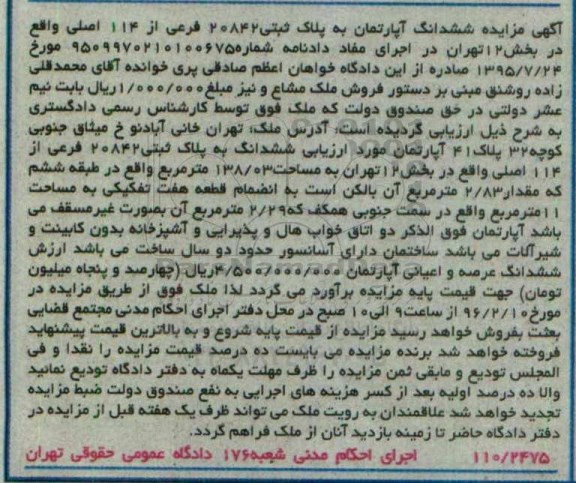 آگهی مزایده ششدانگ آپارتمان به پلاک ثبتی۲۰۸۴۲ فرعی از ۱۱۴ اصلی واقع
در بخش۱۲تهران در اجرای مفاد دادنامه شماره۹۵۰۹۹۷۰۲۱۰۱۰۰۶۷۵ مورخ
۱۳۹۵/۷/۲۴ صادره از این دادگاه خواهان اعظم صادقی پری خوانده آقای محمدقلی
زاده روشنق مبنی بر دستور فروش ملک مشاع و نیز مبلغ۱/۰۰۰/۰۰۰ریال بابت نیم
عشر دولتی در حق صندوق دولت که ملک فوق توسط کارشناس رسمی دادگستری
به شرح ذیل ارزیابی گردیده است: آدرس ملک: تهران خانی آبادنو خ میثاق جنوبی
کوچه۳۲ پلاک۴۱ آپارتمان مورد ارزیابی ششدانگ به پلاک ثبتی۲۰۸۴۲ فرعی از
۱۱۴ اصلی واقع در بخش۱۲تهران به مساحت۱۳۸/۰۳ مترمربع واقع در طبقه ششم
که مقدار۲/۸۳ مترمربع آن بالکن است به انضمام قطعه هفت تفکیکی به مساحت
۱۱مترمربع واقع در سمت جنوبی همکف که۲/۲۹ مترمربع آن بصورت غیرمسقف می
باشد آپارتمان فوق الذکر دو اتاق خواب هال و پذیرایی و آشپزخانه بدون کابینت و
شیرآلات می باشد ساختمان دارای آسانسور حدود دو سال ساخت می باشد ارزش
ششدانگ عرصه و اعیانی آپارتمان ۴/۵۰۰/۰۰۰/۰۰۰ریال (چهارصد و پنجاه میلیون
تومان) جهت قیمت پایه مزایده برآورد می گردد لذا ملک فوق از طریق مزایده در
مورخ۹۶/۲/۱۰ از ساعت۹ الی۱۰ صبح در محل دفتر اجرای احکام مدنی مجتمع قضایی
بعثت بفروش خواهد رسید مزایده از قیمت پایه شروع و به بالاترین قیمت پیشنهاید
فروخته خواهد شد برنده مزایده می بایست ده درصد قیمت مزایده را نقدا و فی
المجلس تودیع و مابقی ثمن مزایده را ظرف مهلت یکماه به دفتر دادگاه تودیع نمائید
والا ده درصد اولیه بعد از کسر هزینه های اجرایی به نفع صندوق دولت ضبط مزایده
تجدید خواهد شد علاقمندان به رویت ملک می تواند ظرف یک هفته قبل از مزایده در
دفتر دادگاه حاضر تا زمینه بازدید آنان از ملک فراهم گردد.
۱۱۰/۲۴۷۵ اجرای احکام مدنی شعبه۱۷۶ دادگاه عمومی حقوقی تهران